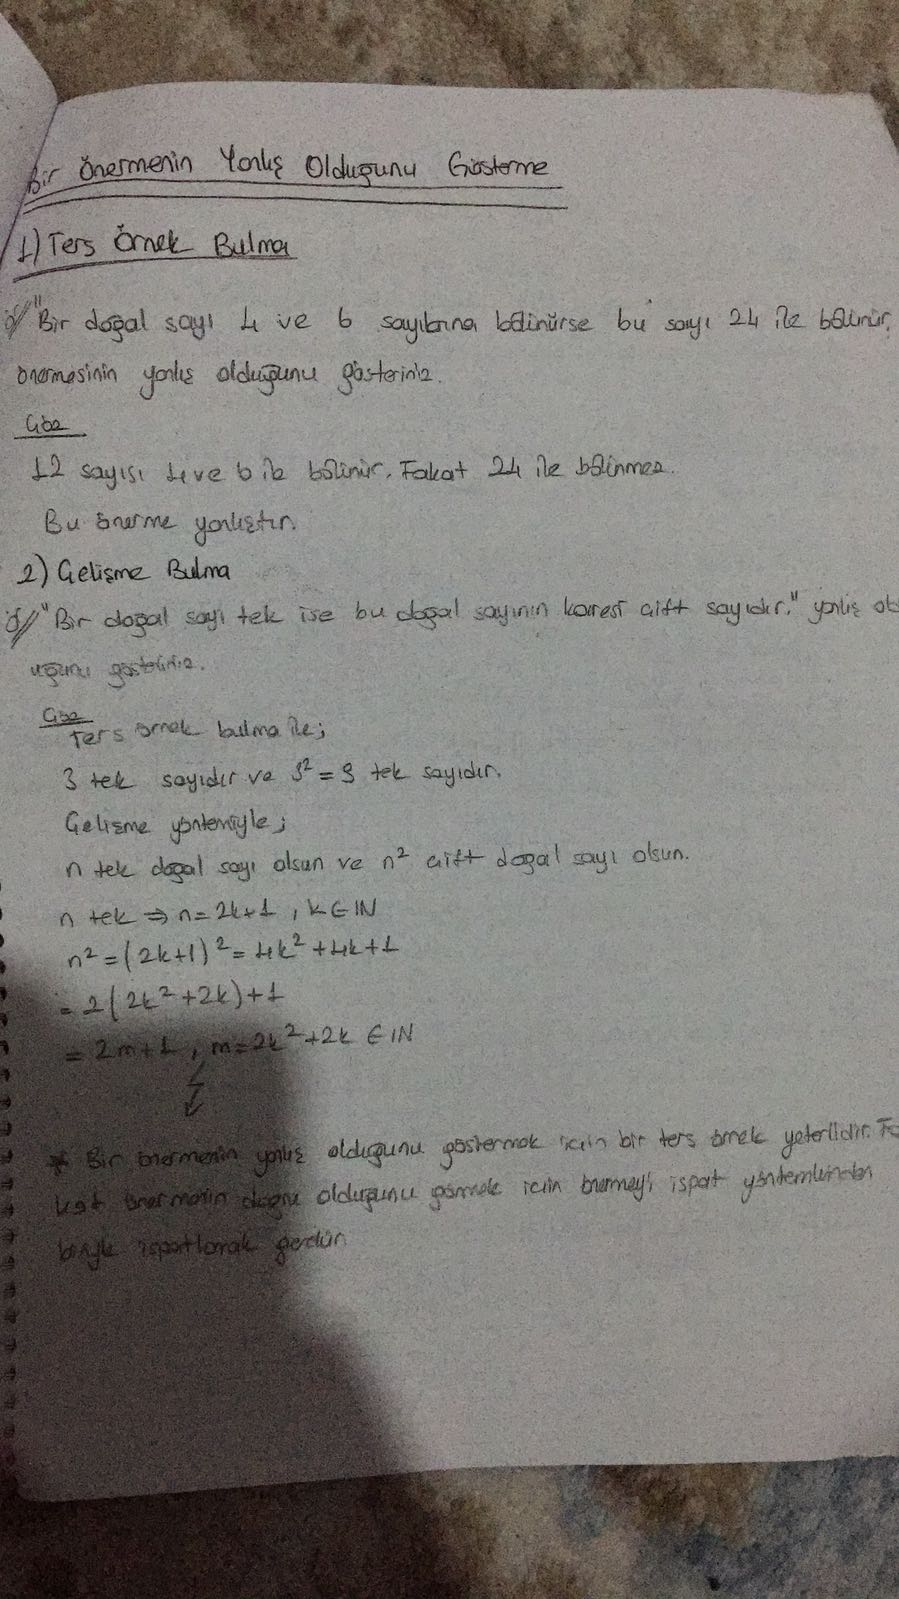 Bir Önermenin Yanlış Olduğunu Gösterme
1) Ters Örnek Bulma
Ö// "Bir doğal sayı 4 ve 6 sayılarına bölünürse bu sayı 24 ile bölünür,
önermesinin yanlış olduğunu gösteriniz.
Çöz
12 sayısı 4 ve 6 ile bölünür. Fakat 24 ile bölünmez.
Bu önerme yanlıştır.
2) Çelişme Bulma
Ö// "Bir doğal sayı tek ise bu doğal sayının karesi çift sayıdır." yanlış old
uğunu gösteriniz.
Çöz
Ters örnek bulma ile;
3 tek sayıdır ve 3² = 9 tek sayıdır.
Çelişme yöntemiyle;
n tek doğal sayı olsun ve n² çift doğal sayı olsun.
n tek ⇒ n = 2k+1, k ∈ IN
n² = (2k+1)² = 4k² + 4k + 1
= 2(2k² + 2k) + 1
= 2m+1, m = 2k² + 2k ∈ IN
* Bir önermenin yanlış olduğunu göstermek için bir ters örnek yeterlidir. Fa
kat önermenin doğru olduğunu görmek için önermeyi ispat yöntemlerinden
biriyle ispatlamak gerekir.